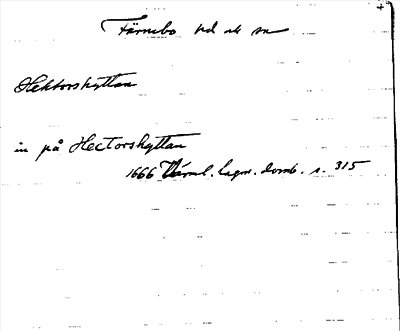 Färnebo hd och sn
Hektorshyttan
in på Hectorshyttan
1666 Värml. lagm. domb. s. 315